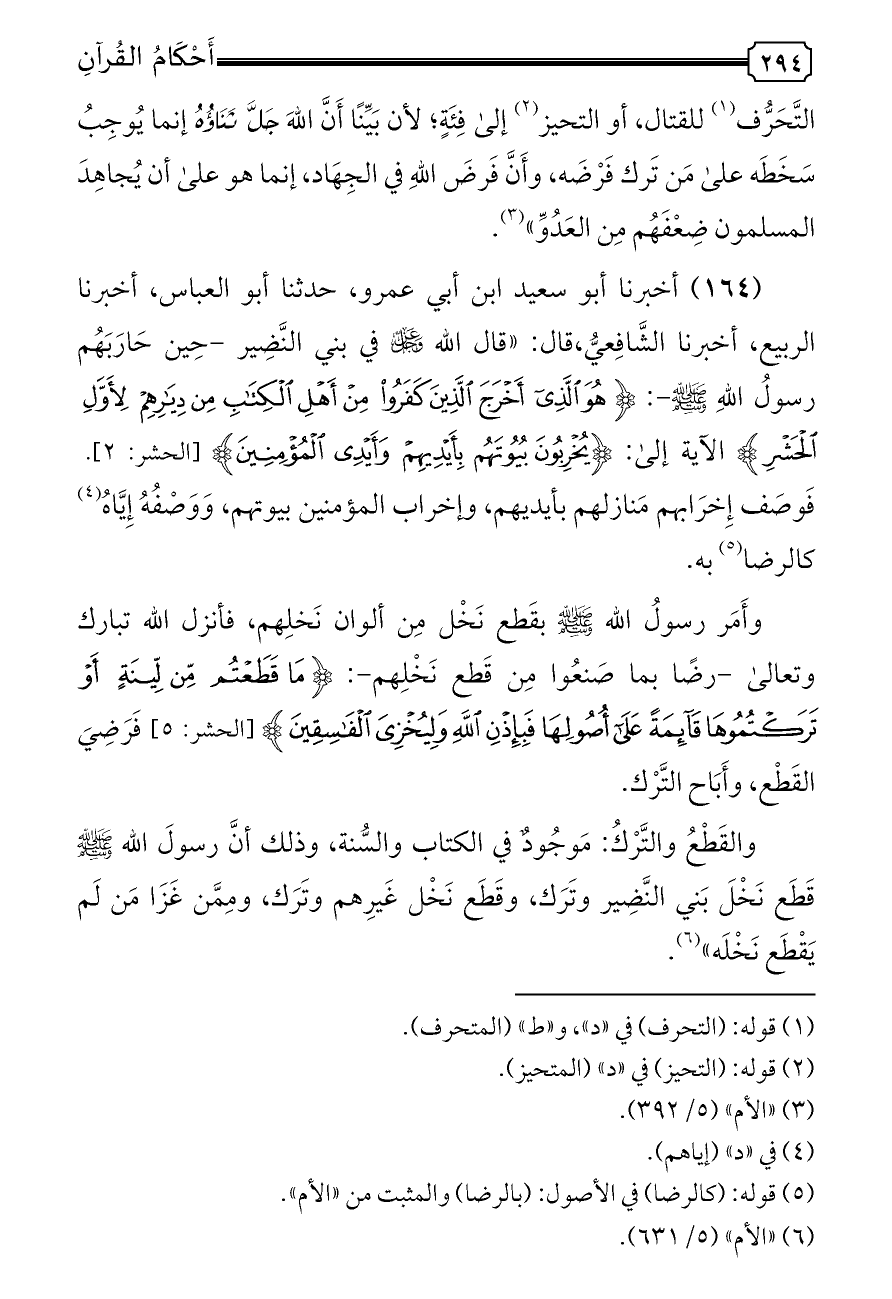 ٢٩٤ أَحْكَامُ القُرآنِ
التَّحَرُّف(١) للقتال، أو التحيز(٢) إلىٰ فِئَةٍ؛ لأن بَيِّنًا أَنَّ اللهَ جَلَّ ثَنَاؤُهُ إنما يُوجِبُ
سَخَطَه علىٰ مَن تَرك فَرْضَه، وأَنَّ فَرضَ اللهِ في الجِهَاد، إنما هو علىٰ أن يُجاهِدَ
المسلمون ضِعْفَهُم مِن العَدُوِّ»(٣).
(١٦٤) أخبرنا أبو سعيد ابن أبي عمرو، حدثنا أبو العباس، أخبرنا
الربيع، أخبرنا الشَّافِعيُّ،قال: «قال الله ﷿ في بني النَّضِير -حِين حَارَبَهُم
رسولُ اللهِ ﷺ-: ﴿هُوَ ٱلَّذِىٓ أَخۡرَجَ ٱلَّذِينَ كَفَرُوا۟ مِنۡ أَهۡلِ ٱلۡكِتَـٰبِ مِن دِيَـٰرِهِمۡ لِأَوَّلِ
ٱلۡحَشۡرِ﴾ الآية إلىٰ: ﴿يُخۡرِبُونَ بُيُوتَهُم بِأَيۡدِيهِمۡ وَأَيۡدِى ٱلۡمُؤۡمِنِينَ﴾ [الحشر: ٢].
فَوصَف إِخرَابهم مَنازلهم بأيديهم، وإخراب المؤمنين بيوتهم، وَوَصْفُهُ إِيَّاهُ(٤)
كالرضا(٥) به.
وأَمَر رسولُ الله ﷺ بقَطع نَخْل مِن ألوان نَخلِهم، فأنزل الله تبارك
وتعالىٰ -رضًا بما صَنعُوا مِن قَطع نَخْلِهم-: ﴿مَا قَطَعۡتُم مِّن لِّينَةٍ أَوۡ
تَرَكۡتُمُوهَا قَآئِمَةً عَلَىٰٓ أُصُولِهَا فَبِإِذۡنِ ٱللَّهِ وَلِيُخۡزِىَ ٱلۡفَـٰسِقِينَ﴾ [الحشر: ٥] فَرَضِيَ
القَطْع، وأَبَاح التَّرْك.
والقَطْعُ والتَّرْكُ: مَوجُودٌ في الكتاب والسُّنة، وذلك أنَّ رسولَ الله ﷺ
قَطَع نَخْلَ بَني النَّضِير وتَرَك، وقَطَع نَخْل غَيرِهم وتَرَك، ومِمَّن غَزَا مَن لَم
يَقْطَع نَخْلَه»(٦).
(١) قوله: (التحرف) في «د»، و«ط» (المتحرف).
(٢) قوله: (التحيز) في «د» (المتحيز).
(٣) «الأم» (٥/ ٣٩٢).
(٤) في «د» (إياهم).
(٥) قوله: (كالرضا) في الأصول: (بالرضا) والمثبت من «الأم».
(٦) «الأم» (٥/ ٦٣١).